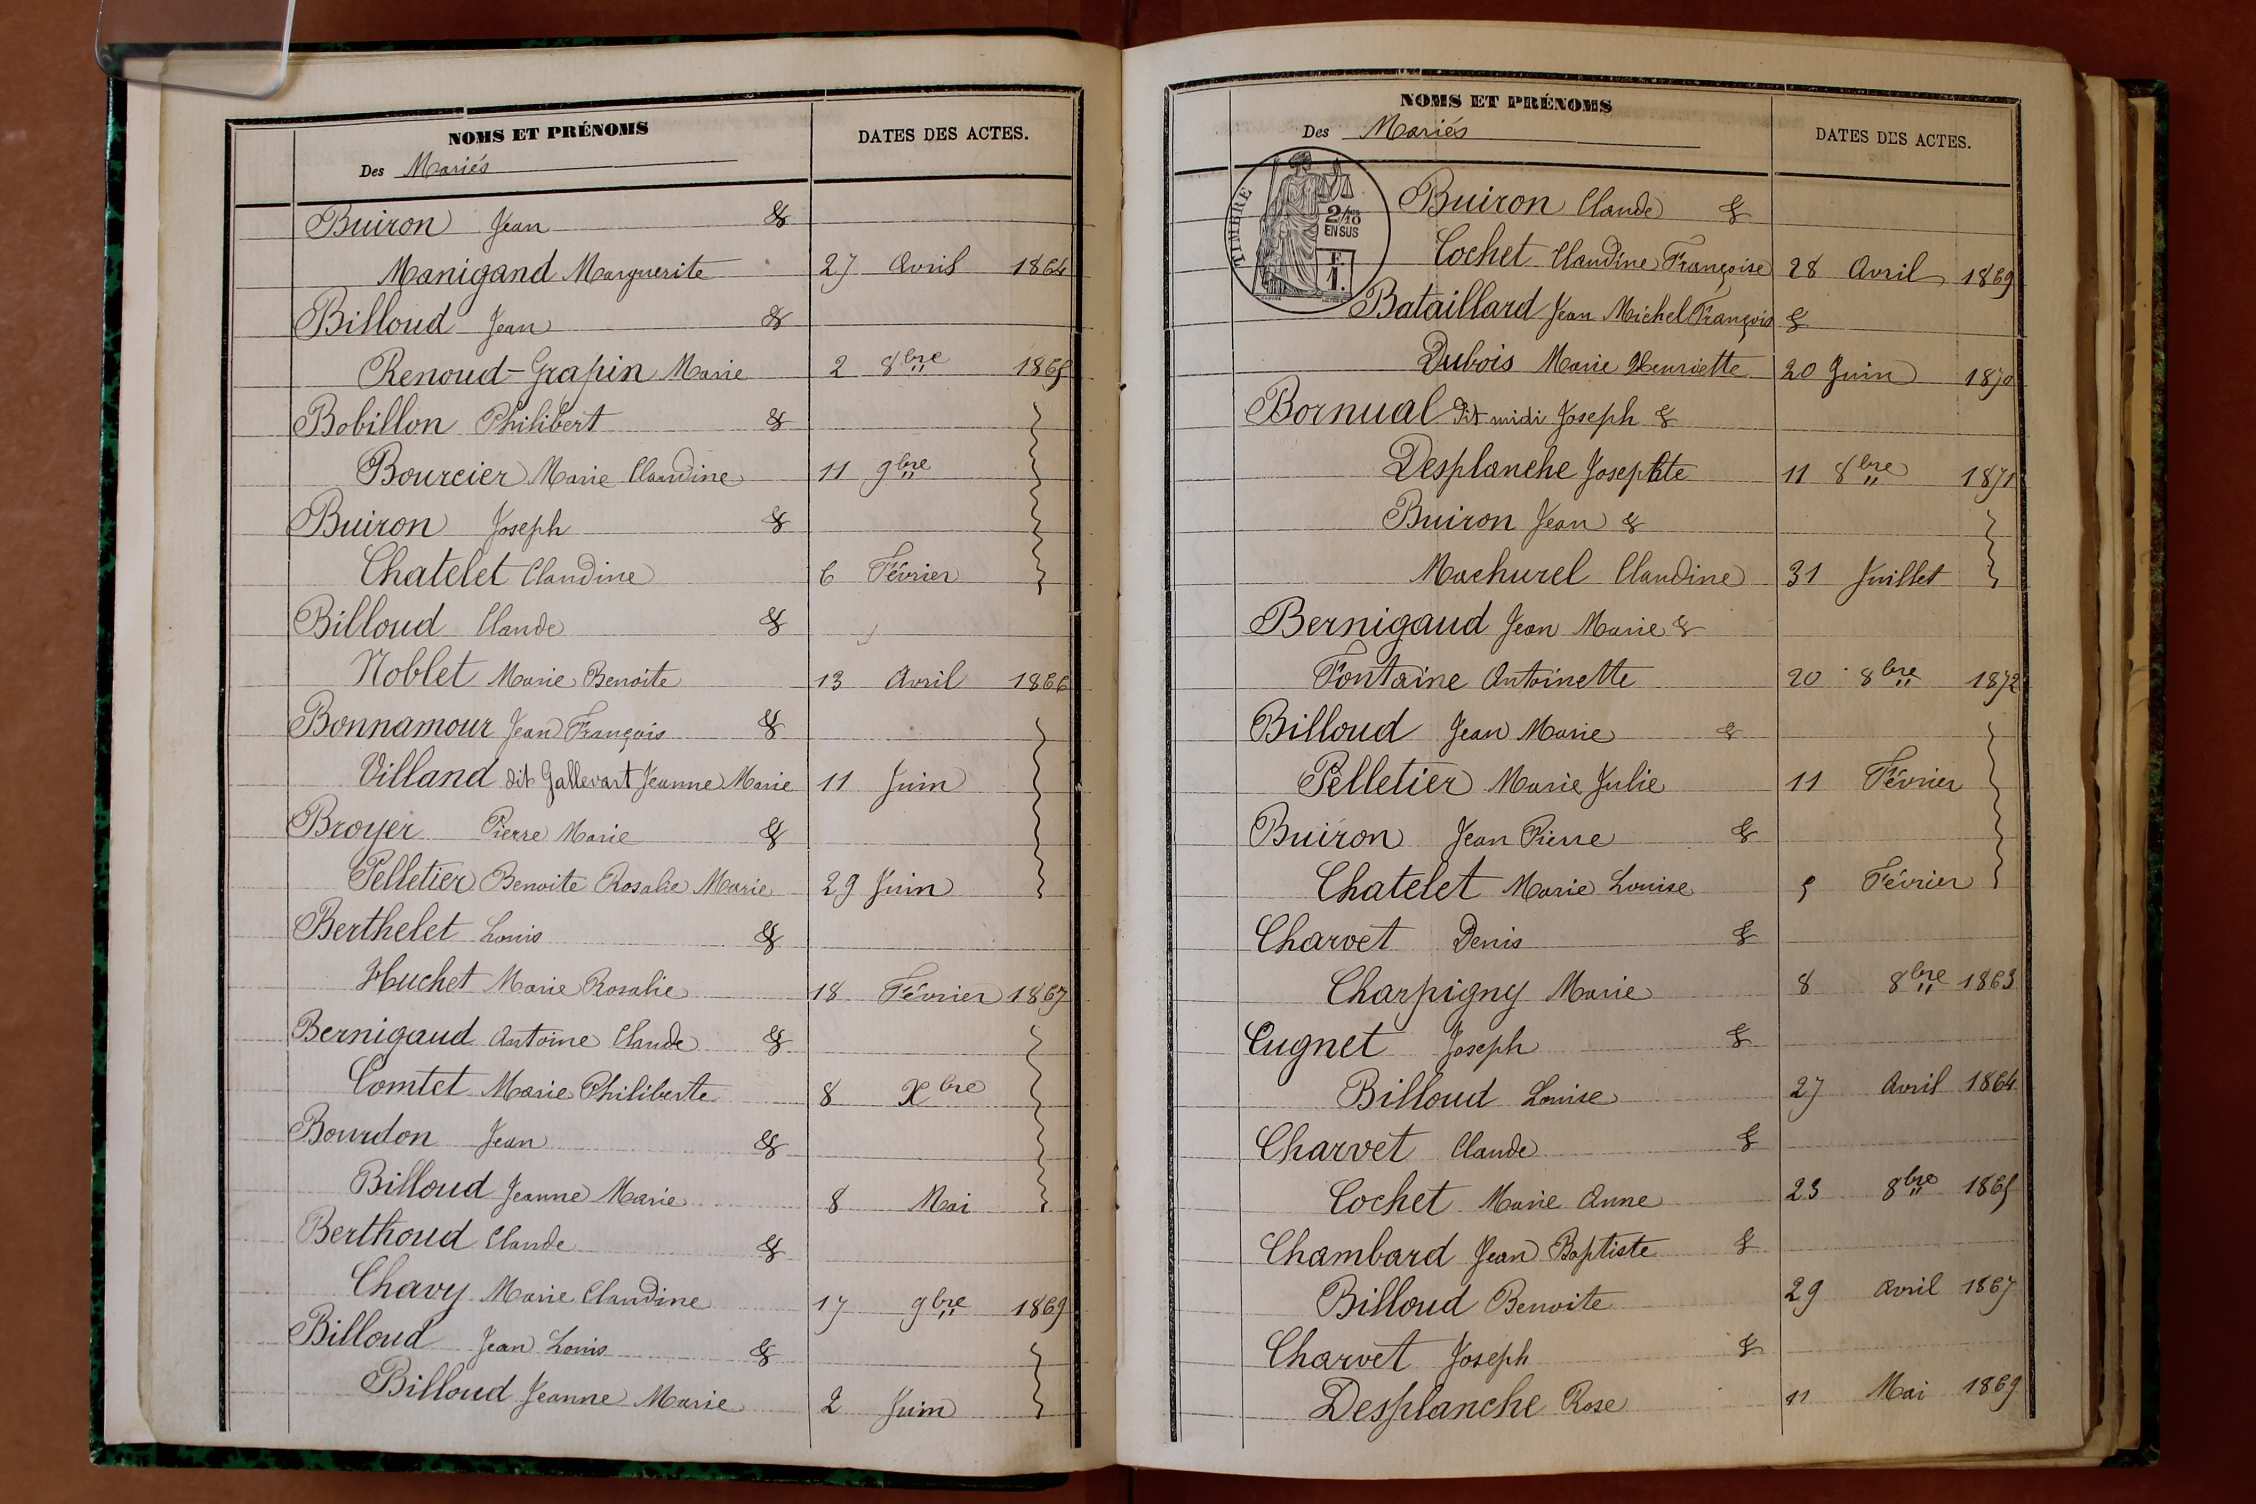 NOMS ET PRÉNOMS
Des Mariés
DATES DES ACTES.
Buiron Jean &
Manigand Marguerite 27 Avril 1864
Billoud Jean &
Renoud-Grapin Marie 2 8bre 1865
Bobillon Philibert &
Bourcier Marie Claudine 11 9bre
Buiron Joseph &
Chatelet Claudine 6 Février
Billoud Claude &
Noblet Marie Benoite 13 Avril 1866
Bonnamour Jean François &
Villand dit Gallevart Jeanne Marie 11 Juin
Broyer Pierre Marie &
Pelletier Benoite Rosalie Marie 29 Juin
Berthelet Louis &
Huchet Marie Rosalie 18 Février 1867
Bernigaud Antoine Claude &
Comtet Marie Philiberte 8 Xbre
Bourdon Jean &
Billoud Jeanne Marie 8 Mai
Berthoud Claude &
Chavy Marie Claudine 17 9bre 1869
Billoud Jean Louis &
Billoud Jeanne Marie 2 Juin
NOMS ET PRÉNOMS
Des Mariés
DATES DES ACTES.
TIMBRE
2/10
EN SUS
F
1.
Buiron Claude &
Cochet Claudine Françoise 28 Avril 1869
Bataillard Jean Michel François &
Dubois Marie Henriette 20 Juin 1870
Bornual dit midi Joseph &
Desplanche Josephte 11 8bre 1871
Buiron Jean &
Machurel Claudine 31 Juillet
Bernigaud Jean Marie &
Fontaine Antoinette 20 8bre 1872
Billoud Jean Marie &
Pelletier Marie Julie 11 Février
Buiron Jean Pierre &
Chatelet Marie Louise 5 Février
Charvet Denis &
Charpigny Marie 8 8bre 1863
Cugnet Joseph &
Billoud Louise 27 Avril 1864
Charvet Claude &
Cochet Marie Anne 23 8bre 1865
Chambard Jean Baptiste &
Billoud Benoite 29 Avril 1867
Charvet Joseph &
Desplanche Rose 11 Mai 1869